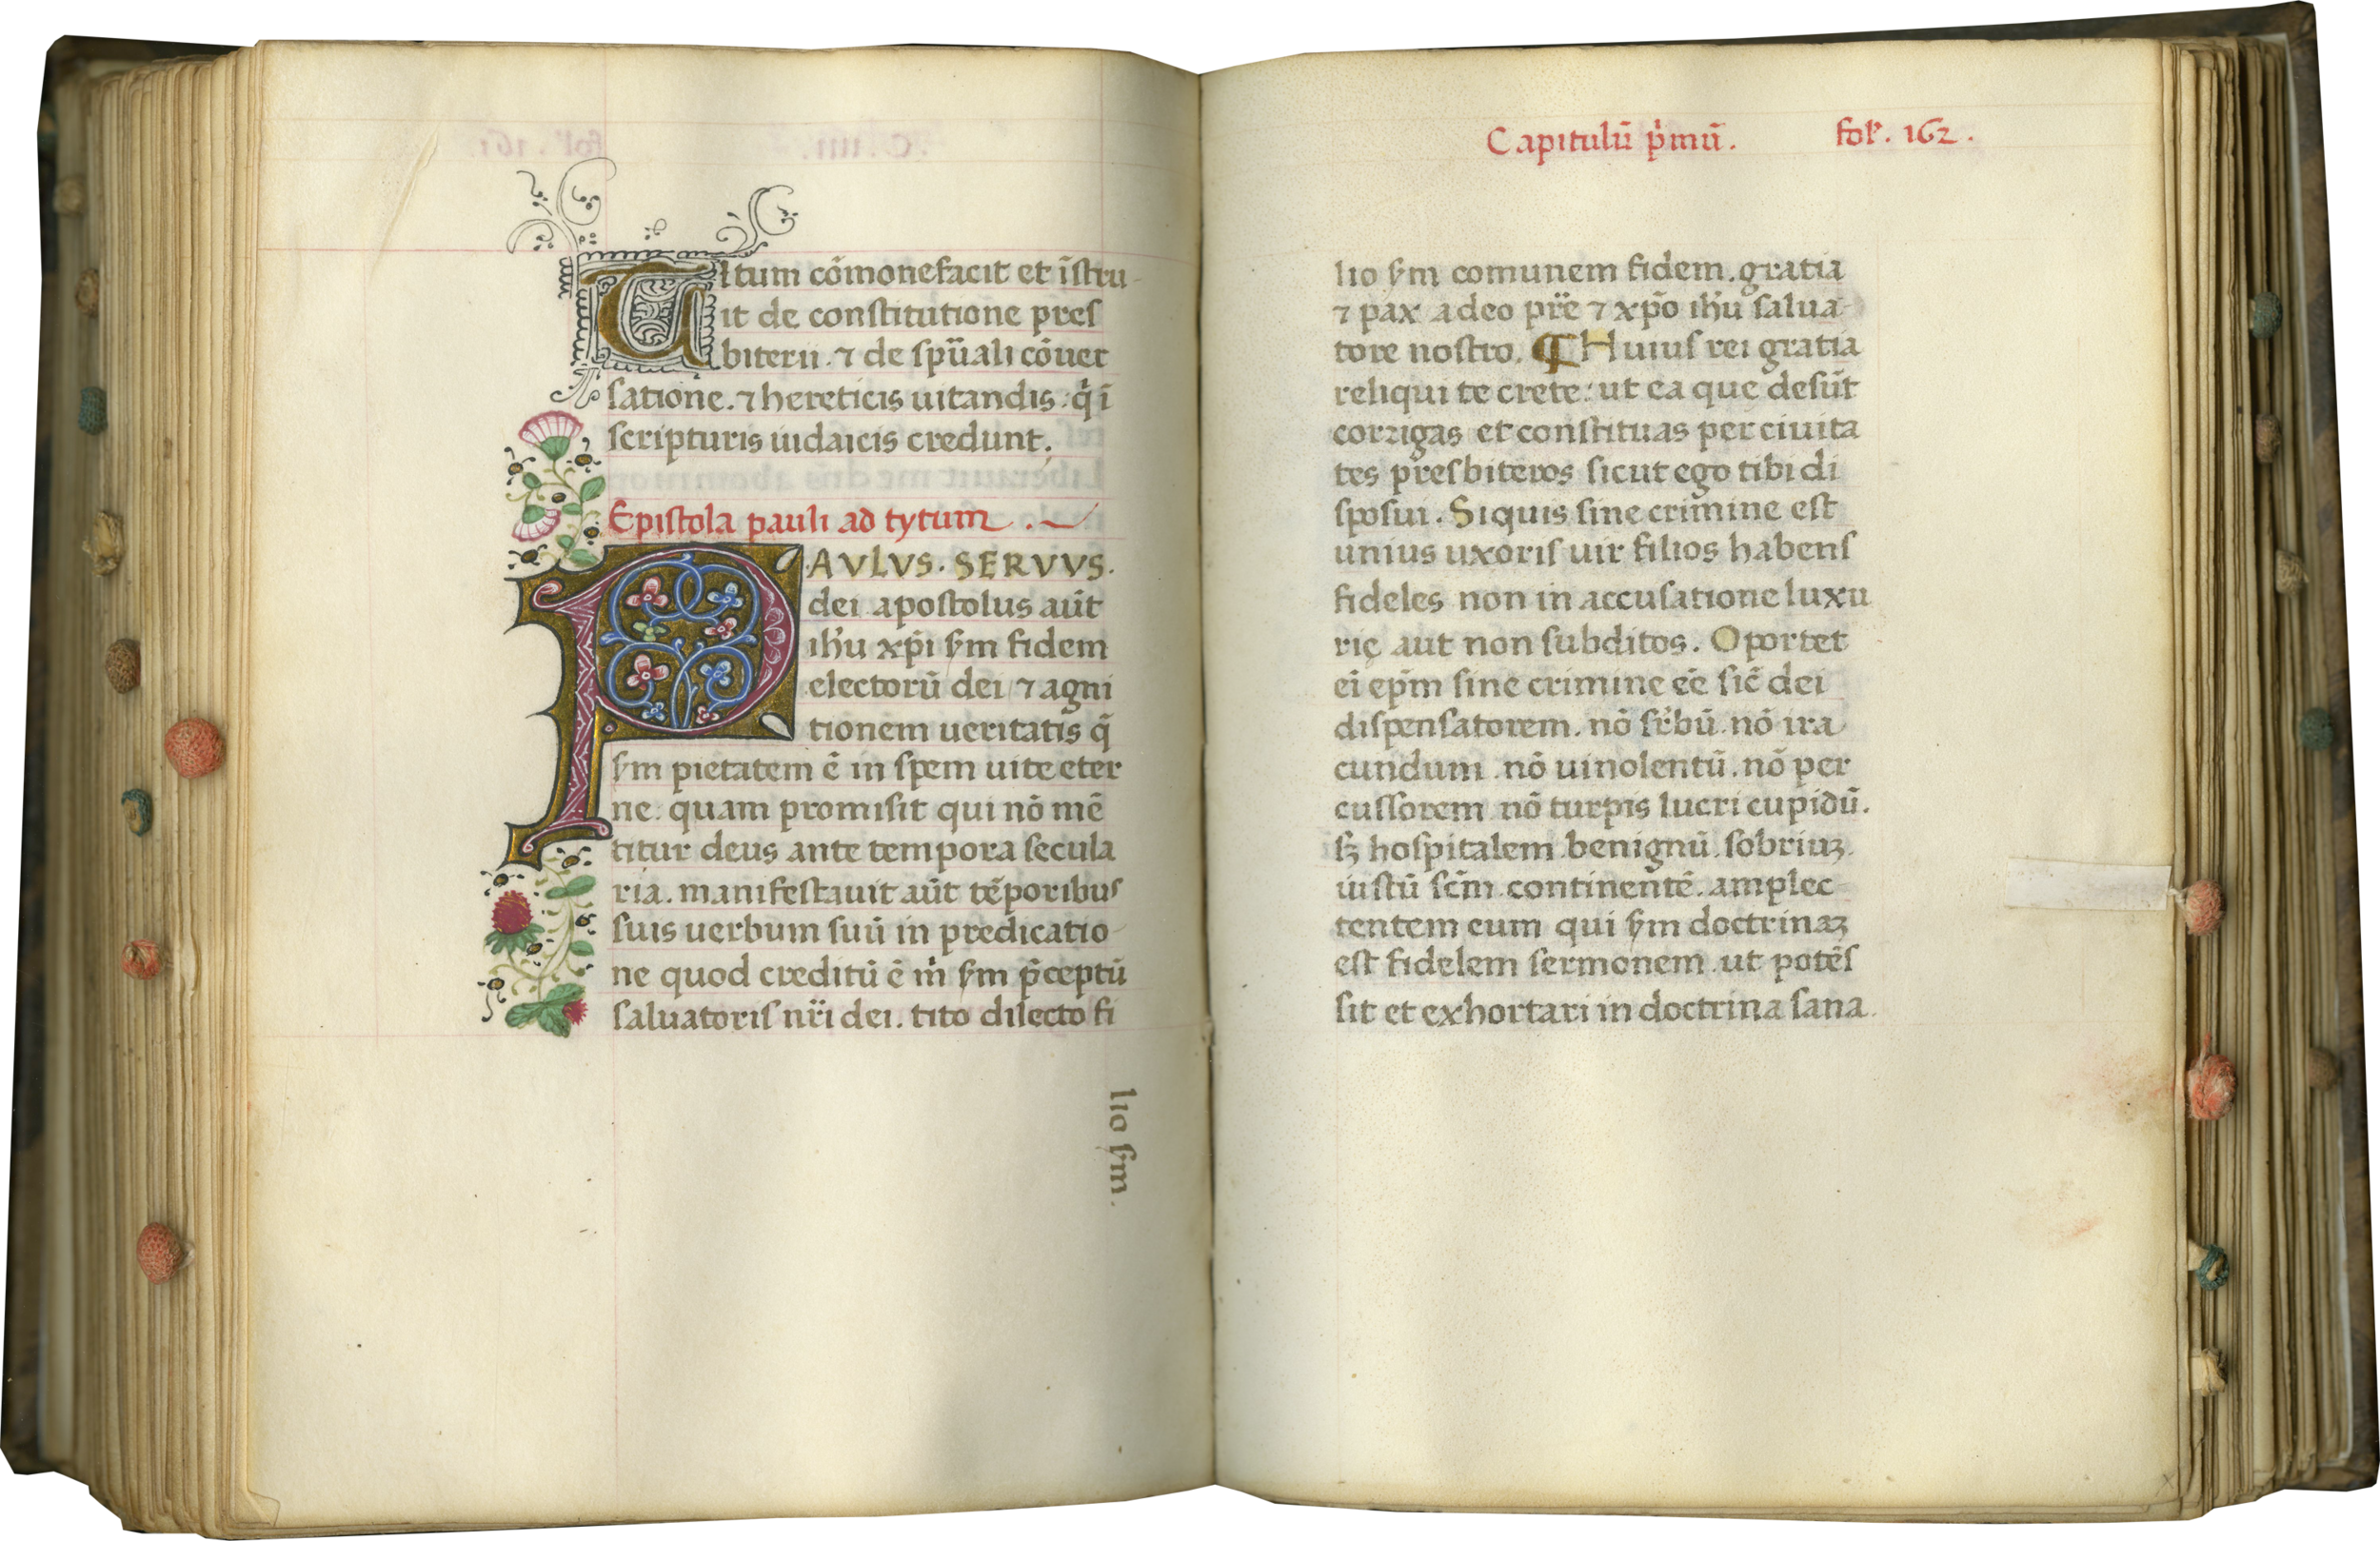 Titum cōmonefacit et īstru-
it de constitutione pres
biterii. ⁊ de spūali cōuer
satione. ⁊ hereticis uitandis: q̇ ī
scripturis iudaicis credunt.
Epistola pauli ad tytum.
PAVLVS. SERVVS.
dei apostolus aūt
ih̄u xp̄i ẜm fidem
electorū dei ⁊ agni
tionem ueritatis q̄
ẜm pietatem ē in spem uite eter
ne: quam promisit qui nō mē
titur deus ante tempora secula
ria. manifestauit aūt tēporibus
suis uerbum suū in predicatio-
ne quod creditū ē m̍ ẜm p̄ceptū
saluatoris nr̄i dei. tito dilecto fi
lio ẜm.
Capitulū p̍mū. fol. 162.
lio ẜm comunem fidem. gratia
⁊ pax a deo pr̄e ⁊ xp̄o ih̄u salua-
tore nostro. ¶ Huius rei gratia
reliqui te crete: ut ea que desūt
corrigas et constituas per ciuita
tes presbiteros sicut ego tibi di
sposui. Siquis sine crimine est
unius uxoris uir filios habens
fideles non in accusatione luxu
rię aut non subditos. Oportet
ei ep̄m sine crimine eē sic̄ dei
dispensatorem. nō sr̄bū. nō ira
cundum. nō uinolentū. nō per
cussorem nō turpis lucri cupidū.
sꝫ hospitalem. benignū. sobriuꝫ.
iustū sc̄m. continentē. amplec-
tentem eum qui ẜm doctrinaꝫ
est fidelem sermonem. ut potēs
sit et exhortari in doctrina sana.